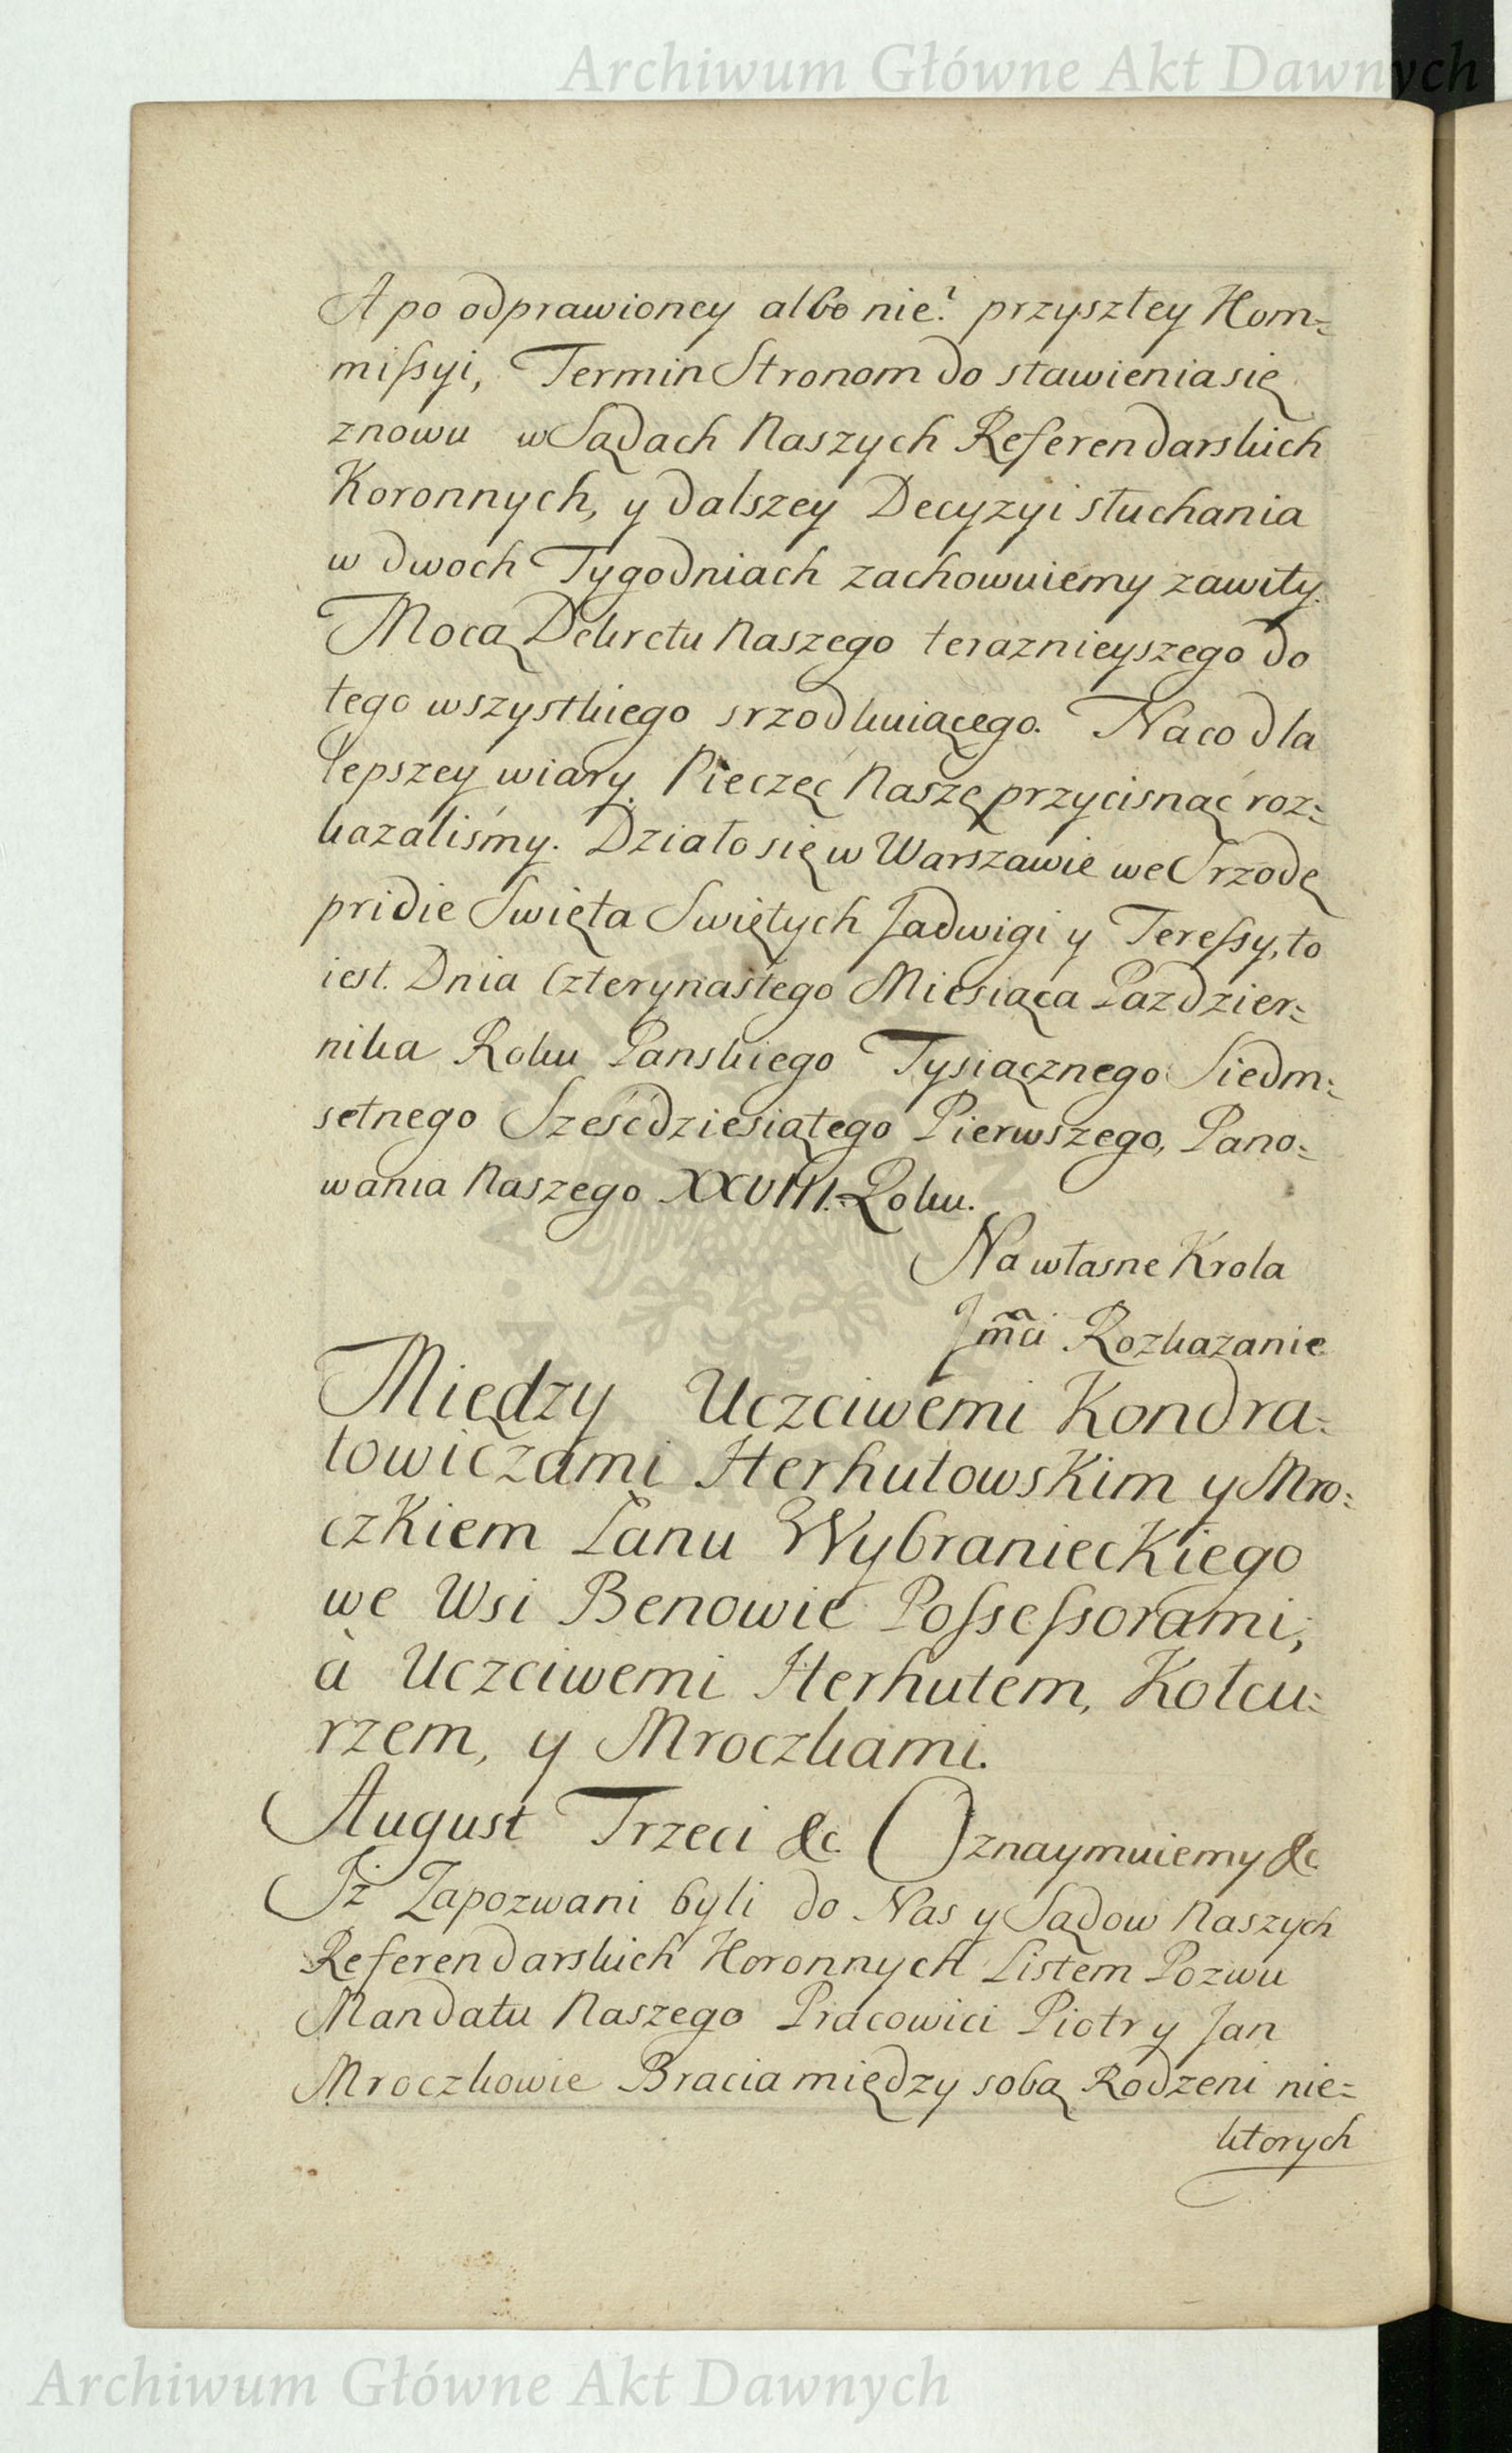 Archiwum Główne Akt Dawnych
A po odprawioney albo nie? przyszłey Kom=
missyi, Termin Stronom do stawienia się
znowu w Sądach Naszych Referendarskich
Koronnych, y dalszey Decyzyi słuchania
w dwoch Tygodniach zachowuiemy zawity.
Mocą Dekretu Naszego teraznieyszego do
tego wszystkiego srzodkuiącego. Na co dla
lepszey wiary, Pieczęć Naszę przycisnąć roz=
kazaliśmy. Działo się w Warszawie we Srzodę
pridie Swięta Swiętych Jadwigi y Teressy, to
iest. Dnia Czterynastego Miesiąca Pazdzier=
nika Roku Panskiego Tysiącznego Siedm=
setnego Sześćdziesiątego Pierwszego, Pano=
wania Naszego XXVIII. Roku.
Na własne Krola
Jm̃ci Rozkazanie
Między Uczciwemi Kondra=
towiczami Herhutowskim y Mro=
czkiem Łanu Wybranieckiego
we Wsi Benowie Possessorami,
à Uczciwemi Herhutem, Kołcu=
rzem, y Mroczkami.
August Trzeci &c. Oznaymuiemy &c.
Iż Zapozwani byli do Nas y Sądow Naszych
Referendarskich Koronnych Listem Pozwu
Mandatu Naszego Pracowici Piotr y Jan
Mroczkowie Bracia między sobą Rodzeni nie=
ktorych
Archiwum Główne Akt Dawnych